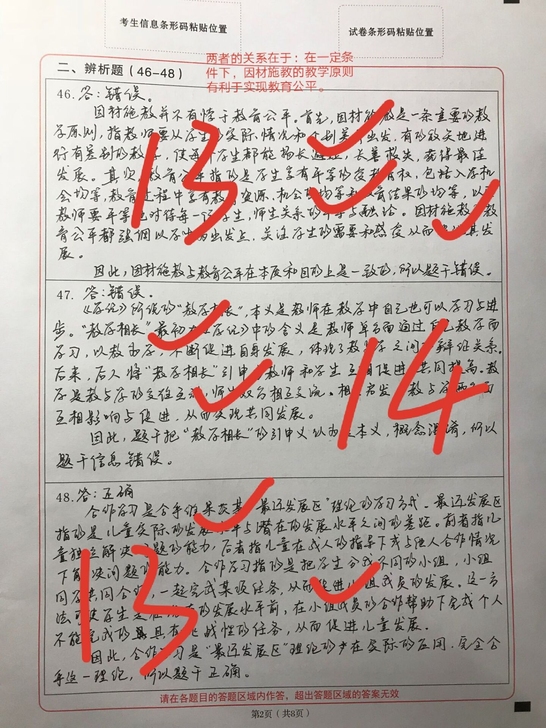 考生信息条形码粘贴位置
试卷条形码粘贴位置
两者的关系在于：在一定条
件下，因材施教的教学原则
有利于实现教育公平。
二、辨析题（46-48）
46. 答：错误。
因材施教并不有悖于教育公平。首先，因材施教是一条重要的教
学原则，指教师要从学生的实际情况和个别差异出发，有的放矢地进
行有差别的教学，使每个学生都能扬长避短，长善救失，获得最佳
发展。其实，教育公平指的是学生享有平等的受教育权，包括入学机
会均等，教育过程中享有教育资源、机会均等和教育结果的均等，以及
教师要平等地对待每一位学生，师生关系的平等与融洽。因材施教与教
育公平都强调以学生为出发点，关注学生的需要和感受从而促进其发
展。
因此，因材施教与教育公平在本质和目的上是一致的，所以题干错误。
13
47. 答：错误。
《学记》所说的“教学相长”，本义是教师在教学中自己也可以学习与进
步。“教学相长”最初在《学记》中的含义是教师单方面通过自己教学而
学习，以教为学，不断促进自身发展，体现了教与学之间的辩证关系。
后来，后人将“教学相长”引申为教师和学生互相促进，共同提高。教
学是教与学的交往互动，师生双方相互交流、相互启发、教与学两方面
互相影响与促进，从而实现共同发展。
因此，题干把“教学相长”的引申义认为是本义，概念混淆，所以
题干信息错误。
14
48. 答：正确
合作学习是合乎维果茨基“最近发展区”理论的学习方式。最近发展区
指的是儿童实际的发展水平与潜在的发展水平之间的差距。前者指儿
童独立解决问题的能力，后者指儿童在成人的指导下或与他人合作情况
下解决问题的能力。合作学习指的是把学生分成不同的小组，小组
同学共同合作，一起完成某项任务，从而促进小组成员的发展。这一方
法可使学生是在现有的发展水平前，在小组成员的合作帮助下完成个人
不能完成的具有挑战性的任务，从而促进儿童发展。
因此，合作学习是“最近发展区”理论的在实际的应用，完全合
乎这一理论，所以题干正确。
13
请在各题目的答题区域内作答，超出答题区域的答案无效
第2页（共8页）